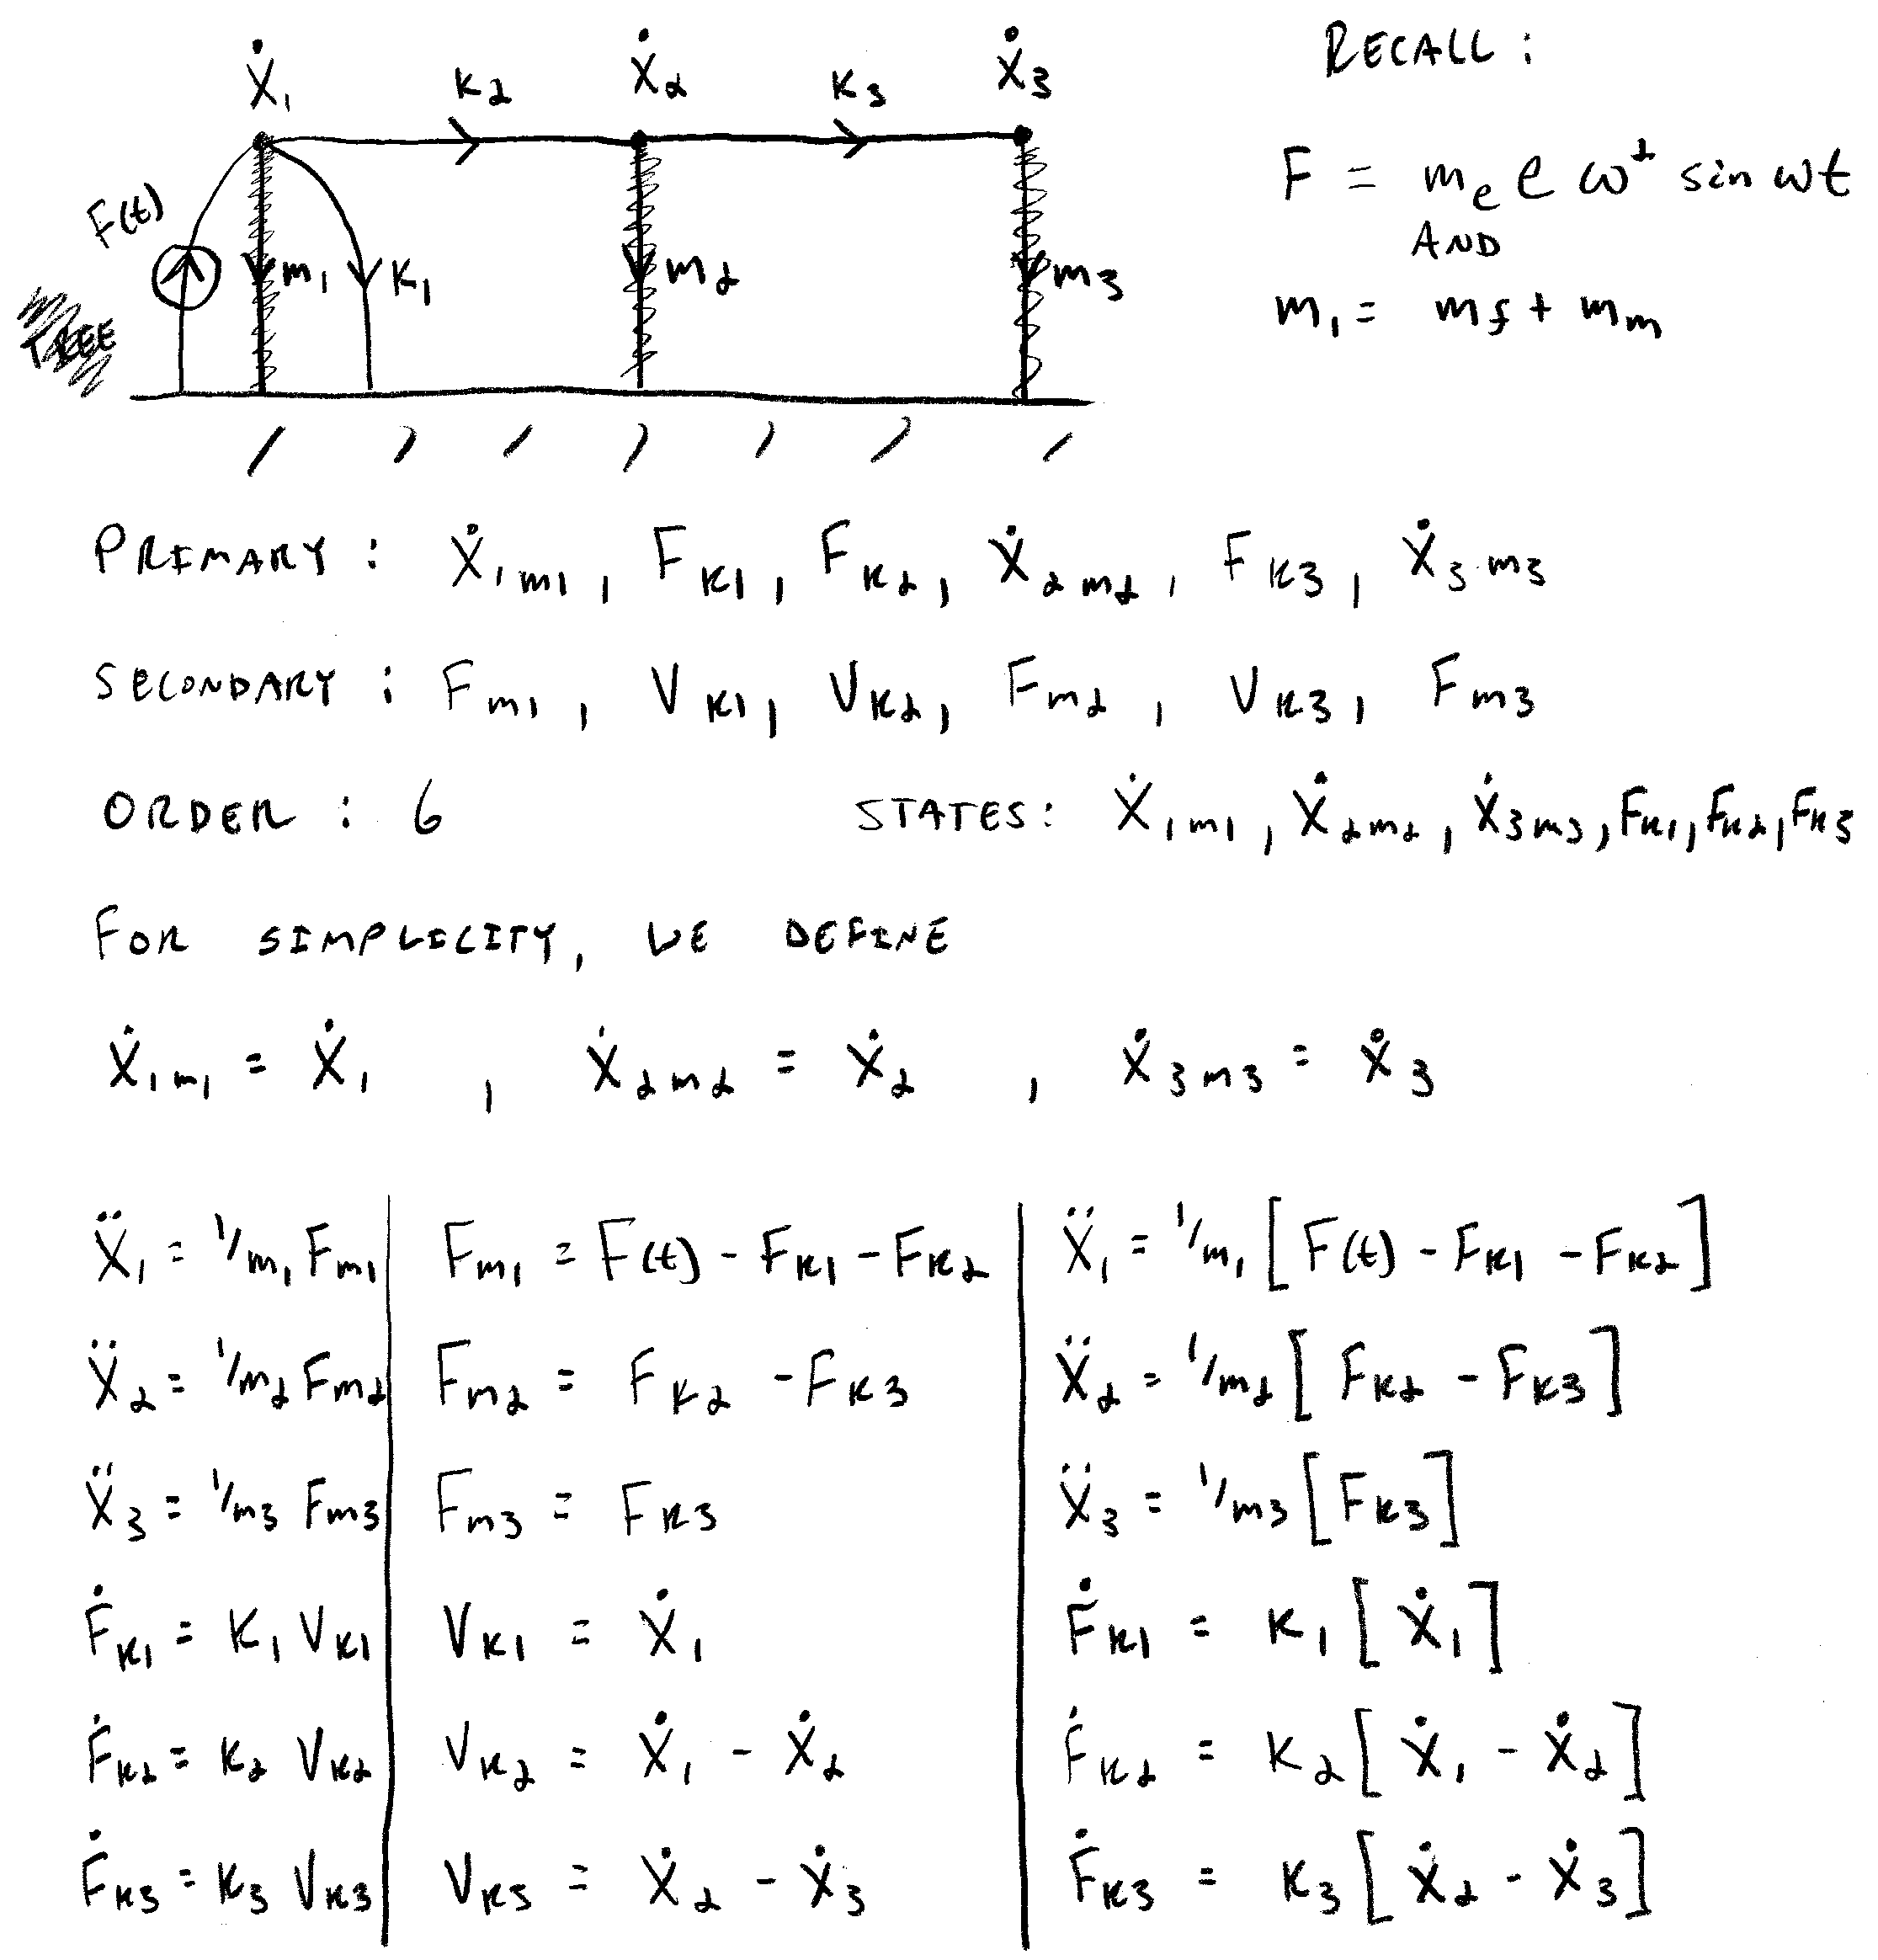 Ẋ₁ K₂ Ẋ₂ K₃ Ẋ₃
F(t) m₁ K₁ m₂ m₃
TREE
RECALL :
F = mₑ e ω² sin ωt
AND
m₁ = m_f + m_m
PRIMARY : Ẋ₁m1 , F_K1 , F_K2 , Ẋ₂m2 , F_K3 , Ẋ₃m3
SECONDARY : F_m1 , V_K1 , V_K2 , F_m2 , V_K3 , F_m3
ORDER : 6 STATES : Ẋ₁m1 , Ẋ₂m2 , Ẋ₃m3 , F_K1 , F_K2 , F_K3
FOR SIMPLICITY, WE DEFINE
Ẋ₁m1 = Ẋ₁ , Ẋ₂m2 = Ẋ₂ , Ẋ₃m3 = Ẋ₃
Ẍ₁ = 1/m₁ F_m1 | F_m1 = F(t) - F_K1 - F_K2 | Ẍ₁ = 1/m₁ [ F(t) - F_K1 - F_K2 ]
Ẍ₂ = 1/m₂ F_m2 | F_m2 = F_K2 - F_K3 | Ẍ₂ = 1/m₂ [ F_K2 - F_K3 ]
Ẍ₃ = 1/m₃ F_m3 | F_m3 = F_K3 | Ẍ₃ = 1/m₃ [ F_K3 ]
Ḟ_K1 = K₁ V_K1 | V_K1 = Ẋ₁ | Ḟ_K1 = K₁ [ Ẋ₁ ]
Ḟ_K2 = K₂ V_K2 | V_K2 = Ẋ₁ - Ẋ₂ | Ḟ_K2 = K₂ [ Ẋ₁ - Ẋ₂ ]
Ḟ_K3 = K₃ V_K3 | V_K3 = Ẋ₂ - Ẋ₃ | Ḟ_K3 = K₃ [ Ẋ₂ - Ẋ₃ ]